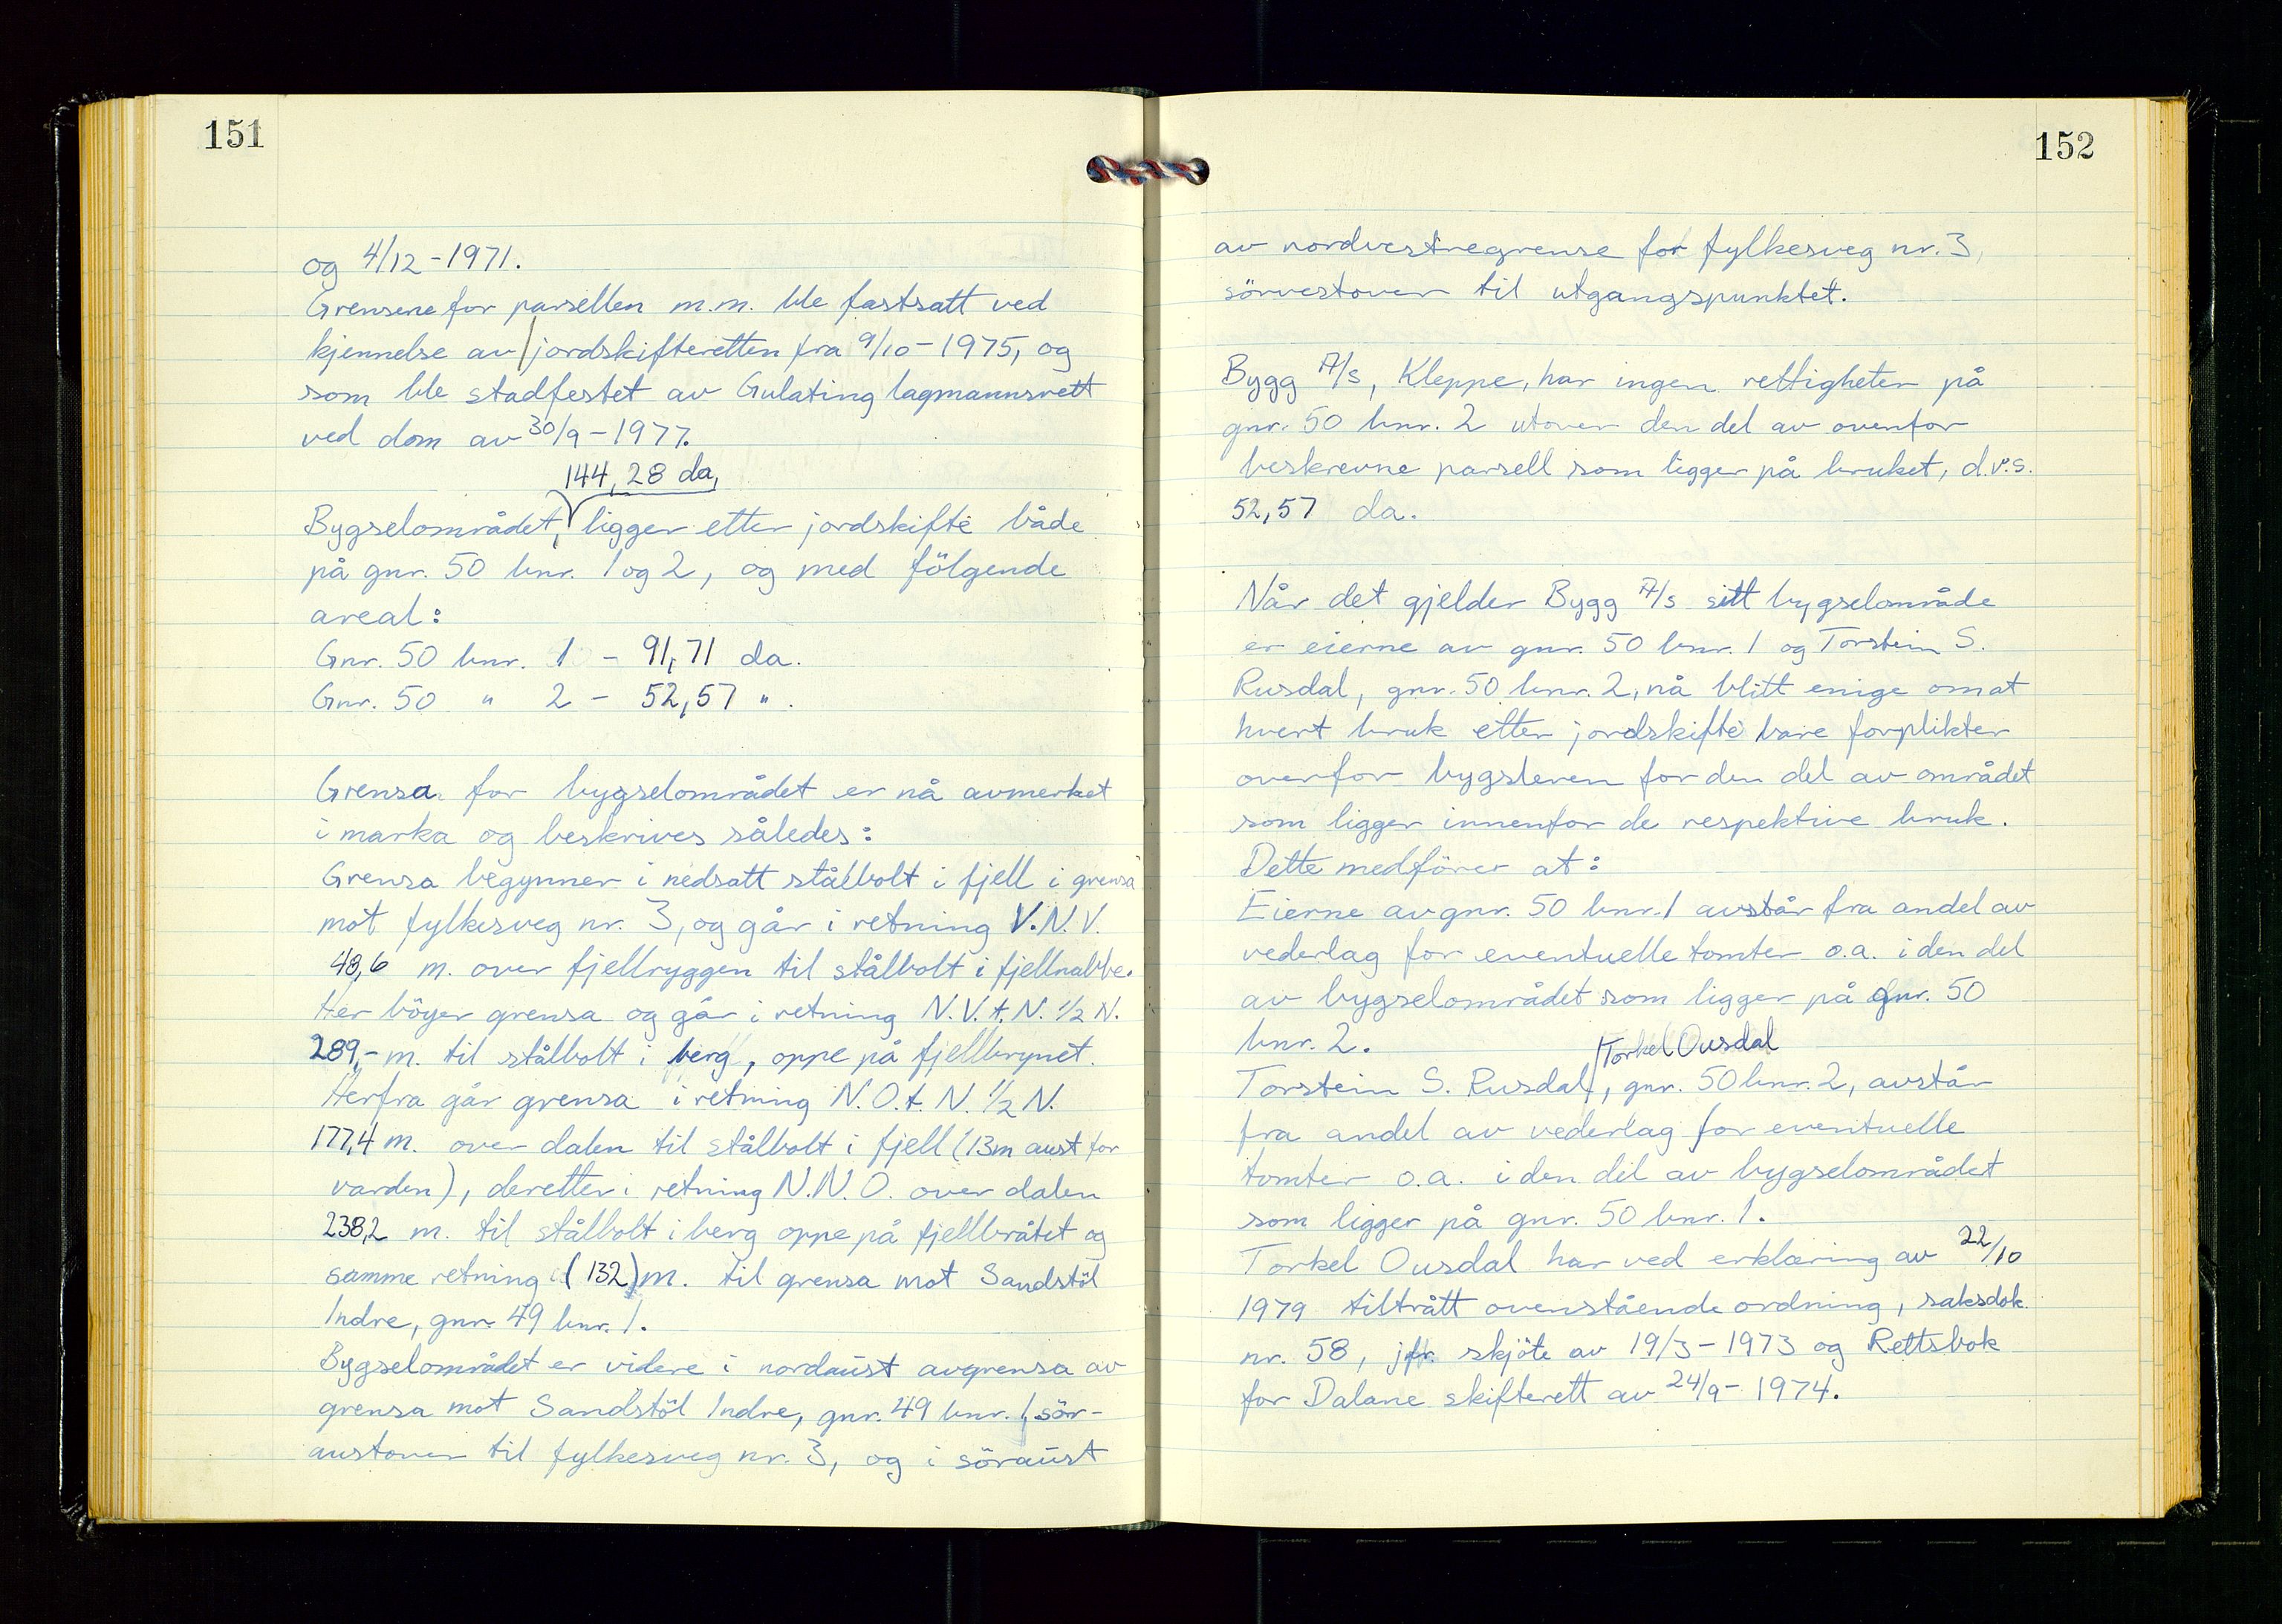 151
og 4/12-1971.
Grensene for parsellen m.m. ble fastsatt ved
kjennelse av jordskifteretten fra 9/10-1975, og
som ble stadfestet av Gulating lagmannsrett
ved dom av 30/9-1977.
144,28 da,
Bygselområdet, ligger etter jordskifte både
på gnr. 50 bnr. 1 og 2, og med fölgende
areal:
Gnr. 50 bnr. 1 - 91,71 da.
Gnr. 50 " 2 - 52,57 ".
Grensa for bygselområdet er nå avmerket
i marka og beskrives således:
Grensa begynner i nedsatt stålbolt i fjell i grensa
mot fylkesveg nr. 3, og går i retning V.N.V.
48,6 m. over fjellryggen til stålbolt i fjellnabbe.
Her böyer grensa og går i retning N.V.t.N. 1/2 N.
289,- m. til stålbolt i berg, oppe på fjellbrynet.
Herfra går grensa i retning N.O.t.N. 1/2 N.
177,4 m. over dalen til stålbolt i fjell (13m aust for
varden), deretter i retning N.N.O. over dalen
238,2 m. til stålbolt i berg oppe på fjellbråtet og
samme retning (132) m. til grensa mot Sandstöl
Indre, gnr. 49 bnr. 1.
Bygselområdet er videre i nordaust avgrensa av
grensa mot Sandstöl Indre, gnr. 49 bnr. 1, sör-
austover til fylkesveg nr. 3, og i söraust
152
av nordvestregrense for fylkesveg nr. 3,
sörvestover til utgangspunktet.
Bygg A/s, Kleppe, har ingen rettigheter på
gnr. 50 bnr. 2 utover den del av ovenfor
beskrevne parsell som ligger på bruket, d.v.s.
52,57 da.
Når det gjelder Bygg A/s sitt bygselområde
er eierne av gnr. 50 bnr. 1 og Torstein S.
Rusdal, gnr. 50 bnr. 2, nå blitt enige om at
hvert bruk etter jordskifte bare forplikter
overfor bygsleren for den del av området
som ligger innenfor de respektive bruk.
Dette medförer at:
Eierne av gnr. 50 bnr. 1 avstår fra andel av
vederlag for eventuelle tomter o.a. i den del
av bygselområdet som ligger på gnr. 50
bnr. 2.
Torkel Ousdal
Torstein S. Rusdal, gnr. 50 bnr. 2, avstår
fra andel av vederlag for eventuelle
tomter o.a. i den del av bygselområdet
som ligger på gnr. 50 bnr. 1.
Torkel Ousdal har ved erklæring av 22/10
1979 tiltrått ovenstående ordning, saksdok.
nr. 58, jfr. skjöte av 19/3-1973 og Rettsbok
for Dalane skifterett av 24/9-1974.